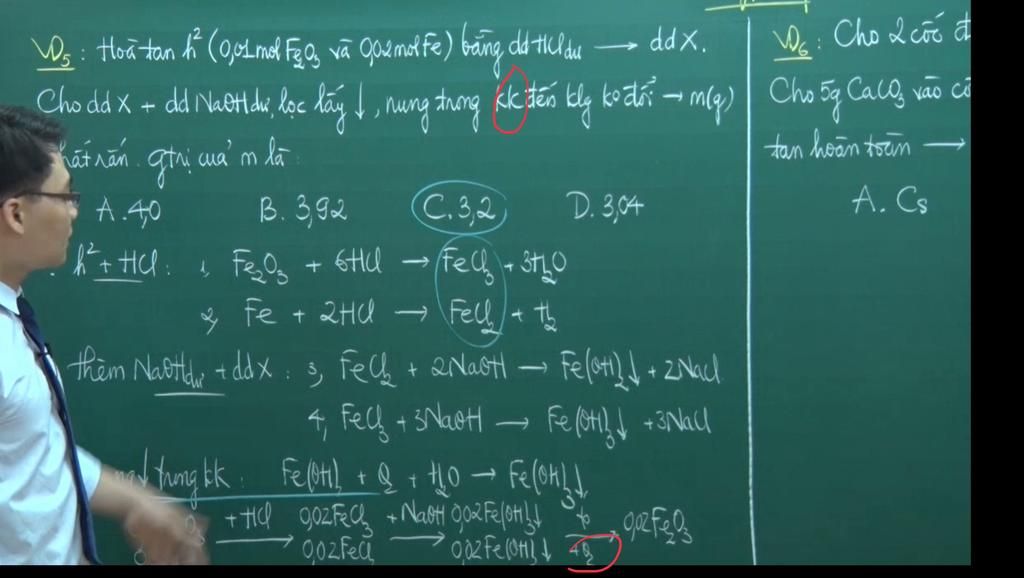 VD5: Hoà tan h² (0,01mol Fe2O3 và 0,02mol Fe) bằng dd HCl dư → dd X.
Cho dd X + dd NaOH dư, lọc lấy ↓, nung trong kk đến klg ko đổi → m(g)
chất rắn. gtrị của m là:
A. 4,0 B. 3,92 C. 3,2 D. 3,04
h² + HCl: 1, Fe2O3 + 6HCl → FeCl3 + 3H2O
2, Fe + 2HCl → FeCl2 + H2
thêm NaOH dư + dd X: 3, FeCl2 + 2NaOH → Fe(OH)2↓ + 2NaCl
4, FeCl3 + 3NaOH → Fe(OH)3↓ + 3NaCl
↓ trong kk: Fe(OH)2 + O2 + H2O → Fe(OH)3↓
+HCl 0,02FeCl3 +NaOH 0,02Fe(OH)3↓ t° 0,02Fe2O3
→ 0,02FeCl2 → 0,02Fe(OH)2↓ +O2
VD6: Cho 2 cốc đ
Cho 5g CaCO3 vào cố
tan hoàn toàn →
A. Cs